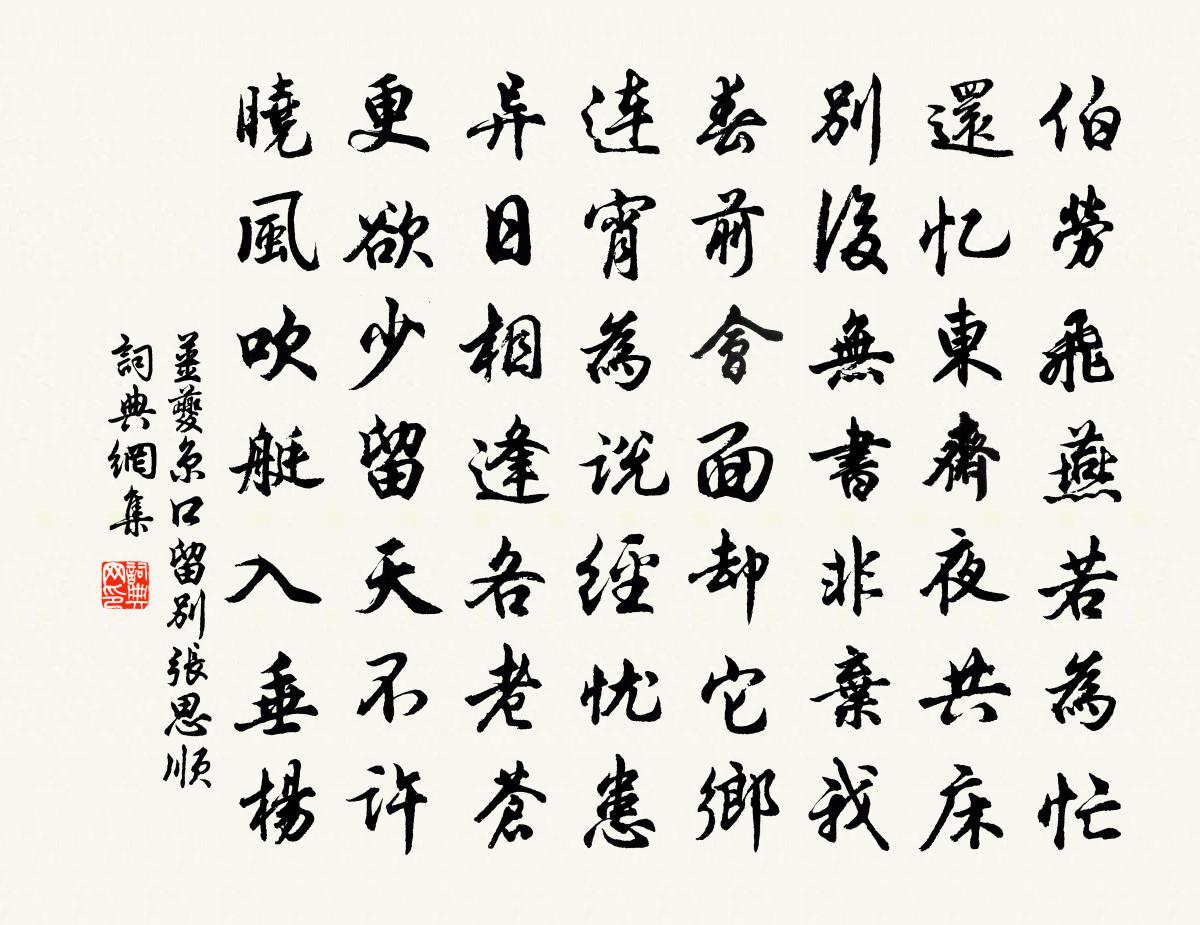 伯勞飛燕若為忙
還忆東齋夜共床
別後無書非棄我
春前會面却它鄉
連宵為説經忧患
异日相逢各老蒼
更欲少留天不許
曉風吹艇入垂楊
姜夔京口留別張思順
詞典網集
詞典网印